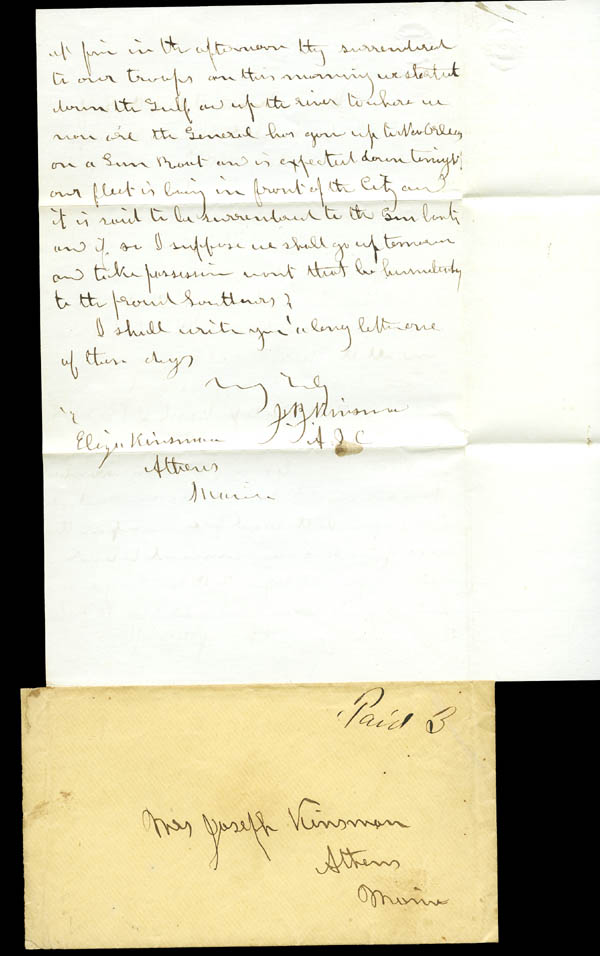 at five in the afternoon they surrendered
to our troops and this morning we started
down the Gulf and up the river to where we
now are the General has gone up to New Orleans
on a Gun Boat and is expected down tonight
our fleet is lying in front of the City and
it is said to be surrendered to the Gun boats
and if so I suppose we shall go up tomorrow
and take possession wont that be
to the proud Southerners?
I shall write you a long letter one
of these days
Kinsman
Eliza Kinsman A. D. C
Athens
Maine
Paid 3
Mrs Joseph Kinsman
Athens
Maine